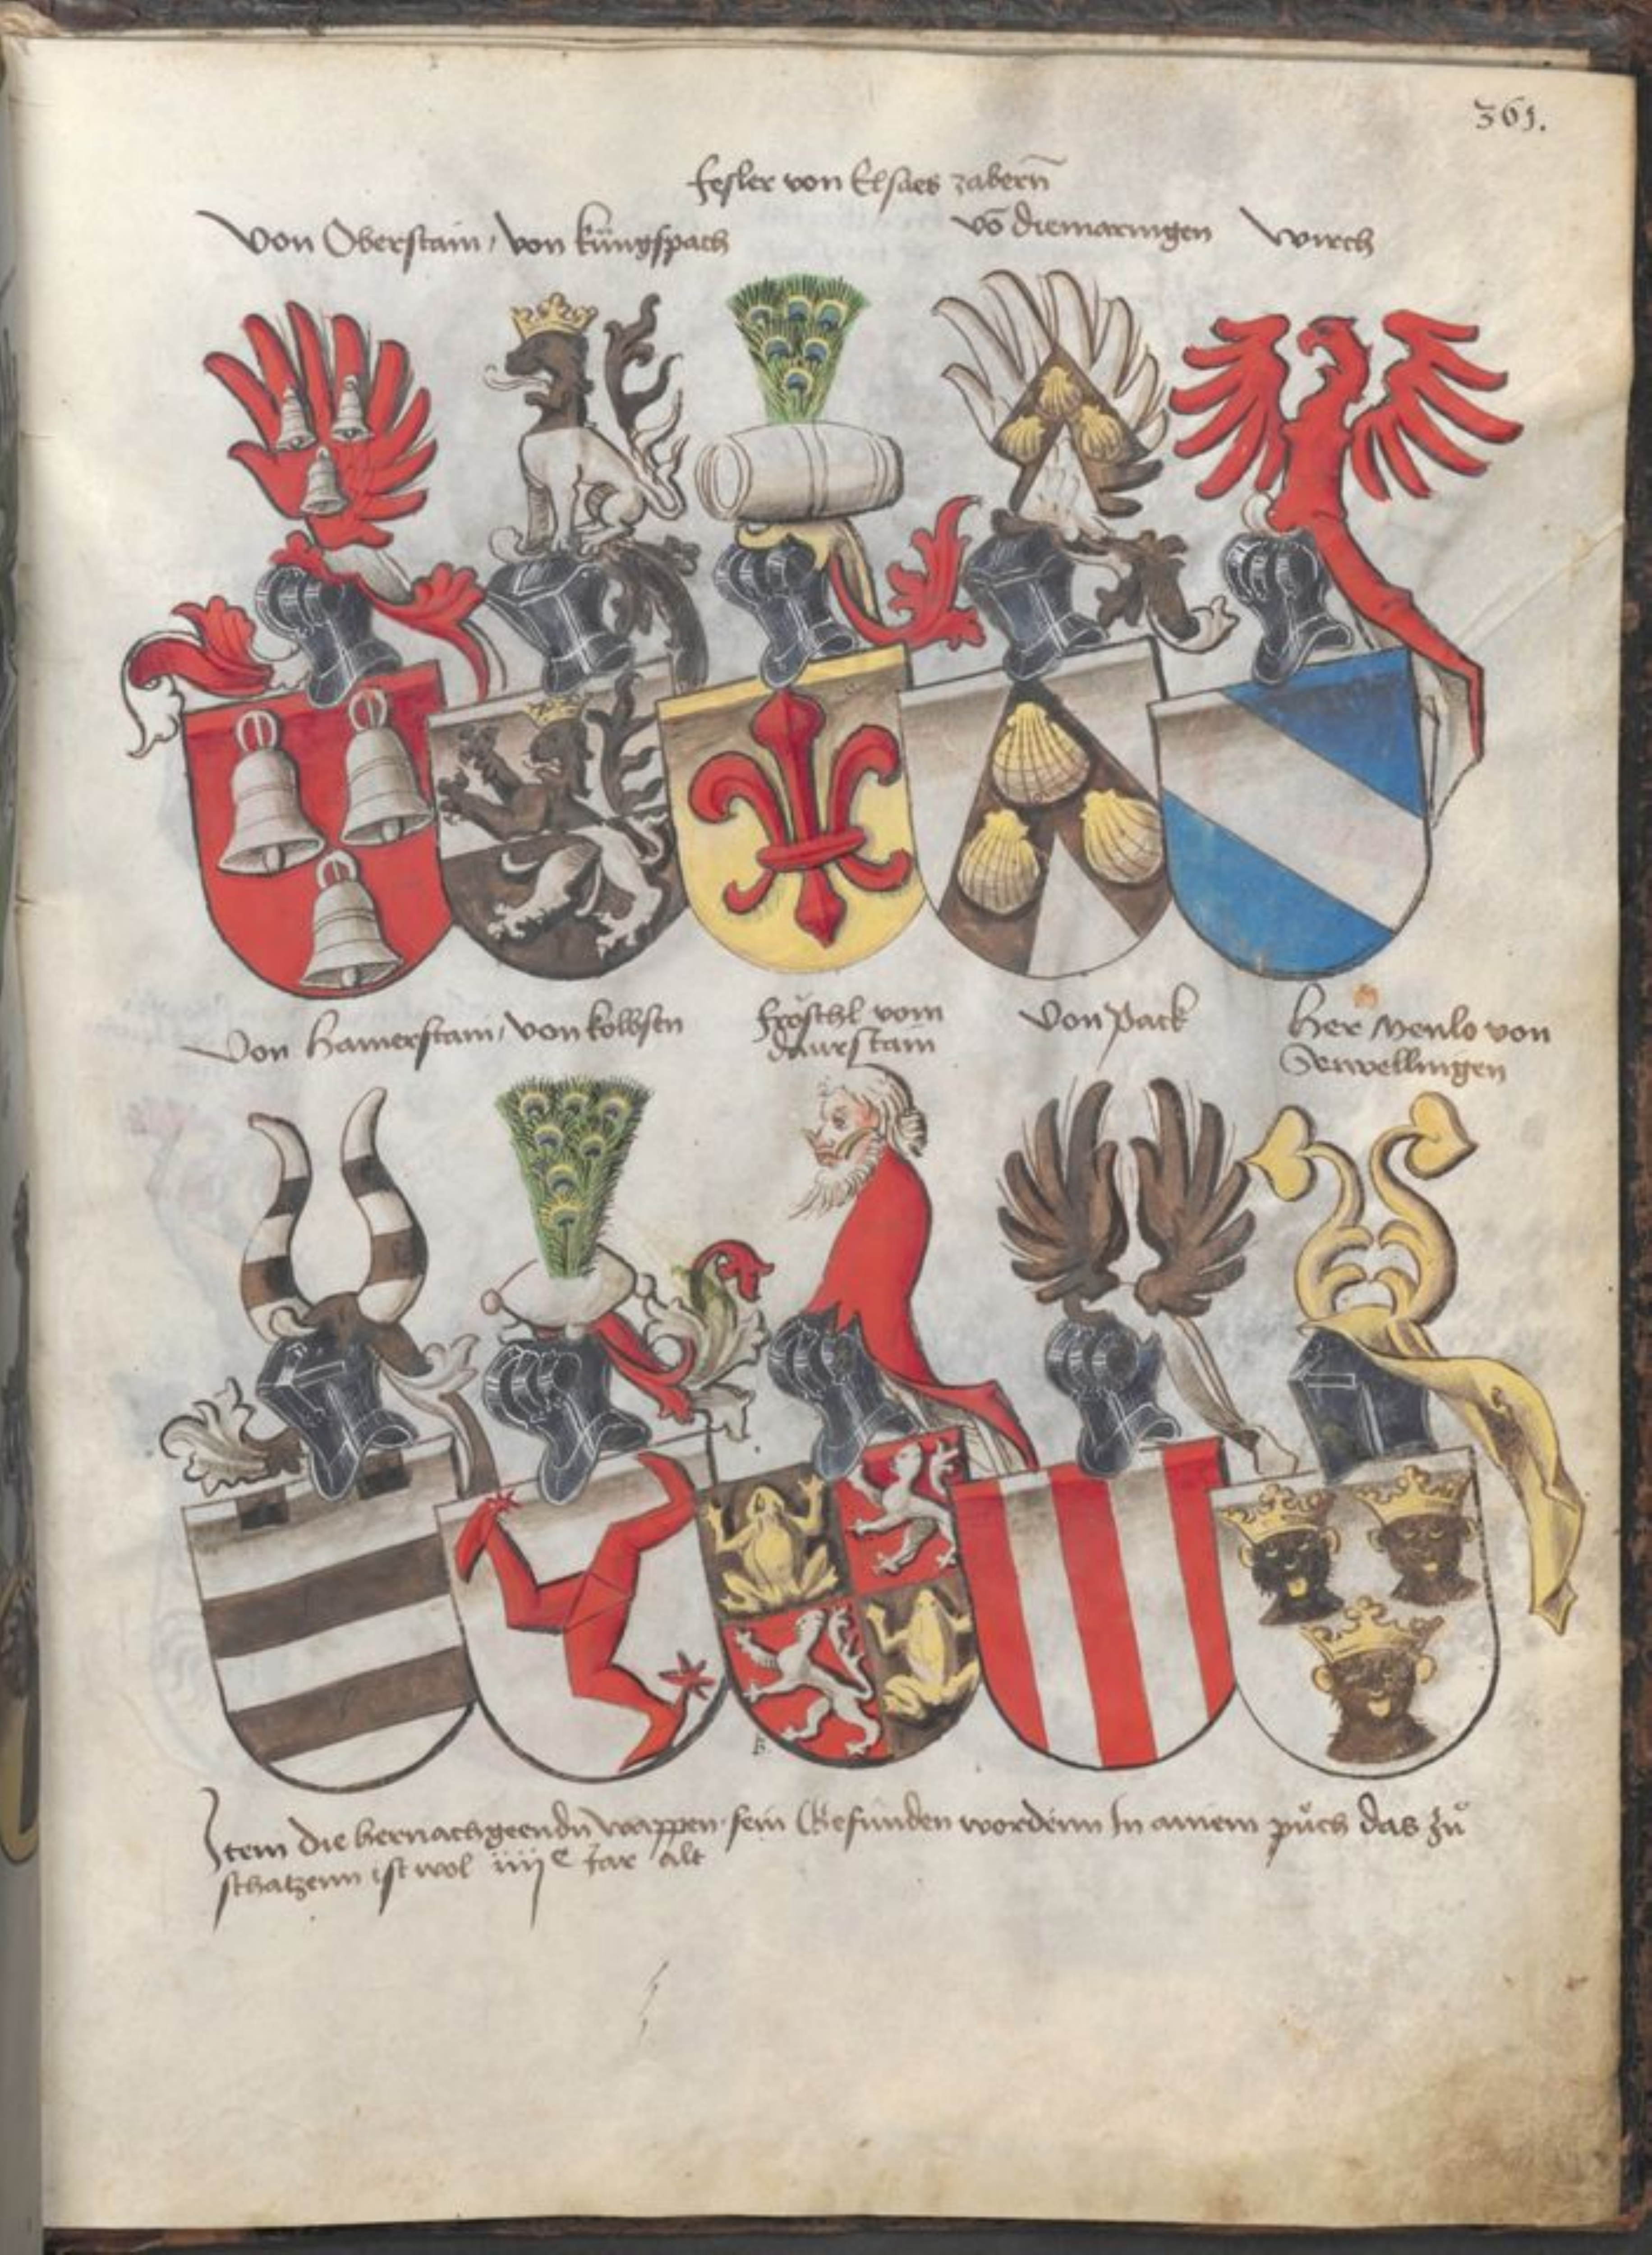 361.
Fesler von Elsaes zabern̄
Von Oberstain, von küngspach
vō diemaringen
wirch
Von Hamerstain, von kolbsen
Fröschl vom
daurstain
Von Pack
Her Menlo von
Item die hernachgeendn wappen sein Gefunden wordenn In ainem půch das zů
schatzenn ist wol iiijc Jar alt